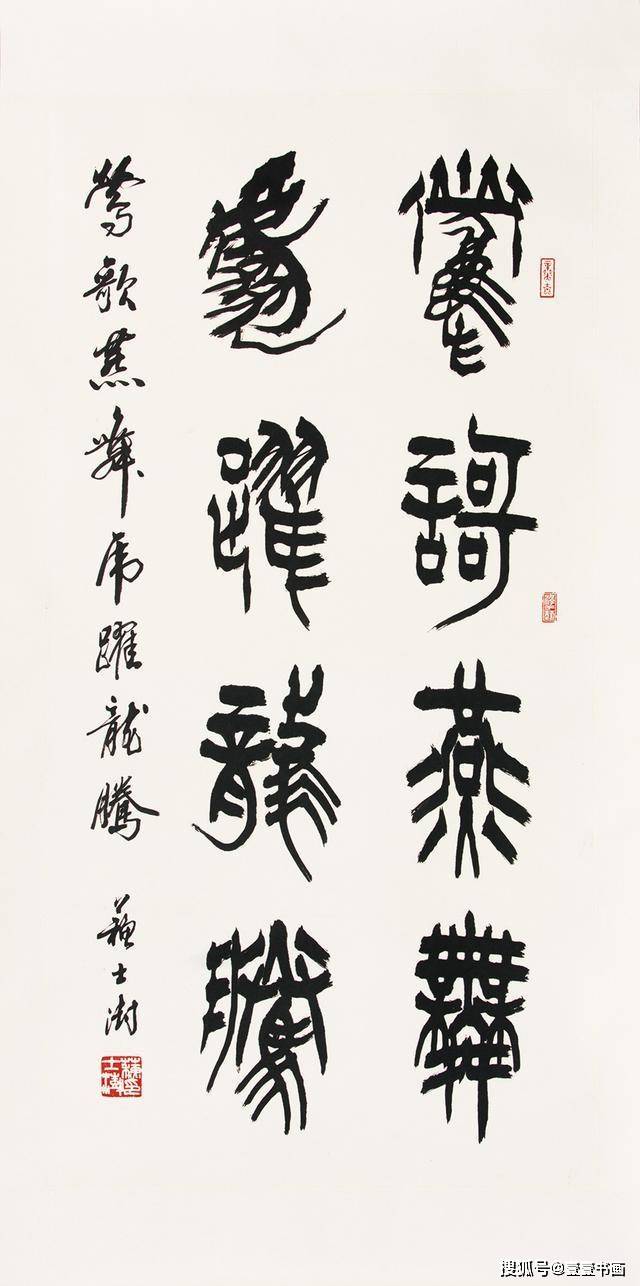 鶯謌燕舞
虎躍龍騰
鶯歌燕舞虎躍龍騰 蘇士澍
搜狐号@壹壹书画